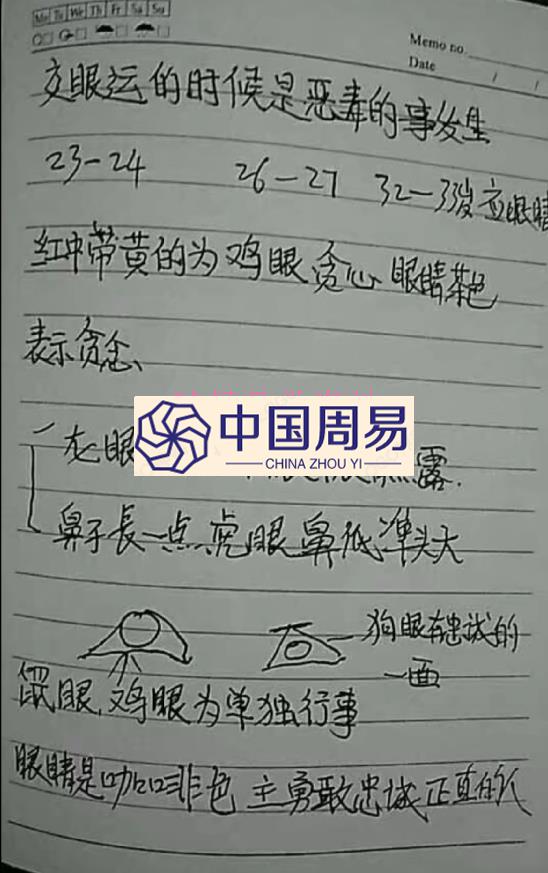 Mo Tu We Th Fr Sa Su
Memo no.
Date / /
交眼运的时候是恶毒的事发生
23-24 26-27 32-33岁 应眼睛
红中带黄的为鸡眼贪心 眼睛茶色
表示贪念、
龙眼
露.
中国周易
CHINA ZHOU YI
鼻子長一点虎眼鼻低準头大
狗眼有忠诚的
一面
鼠眼,鸡眼为单独行事
眼睛是咖口非色 主勇敢忠诚正直的人